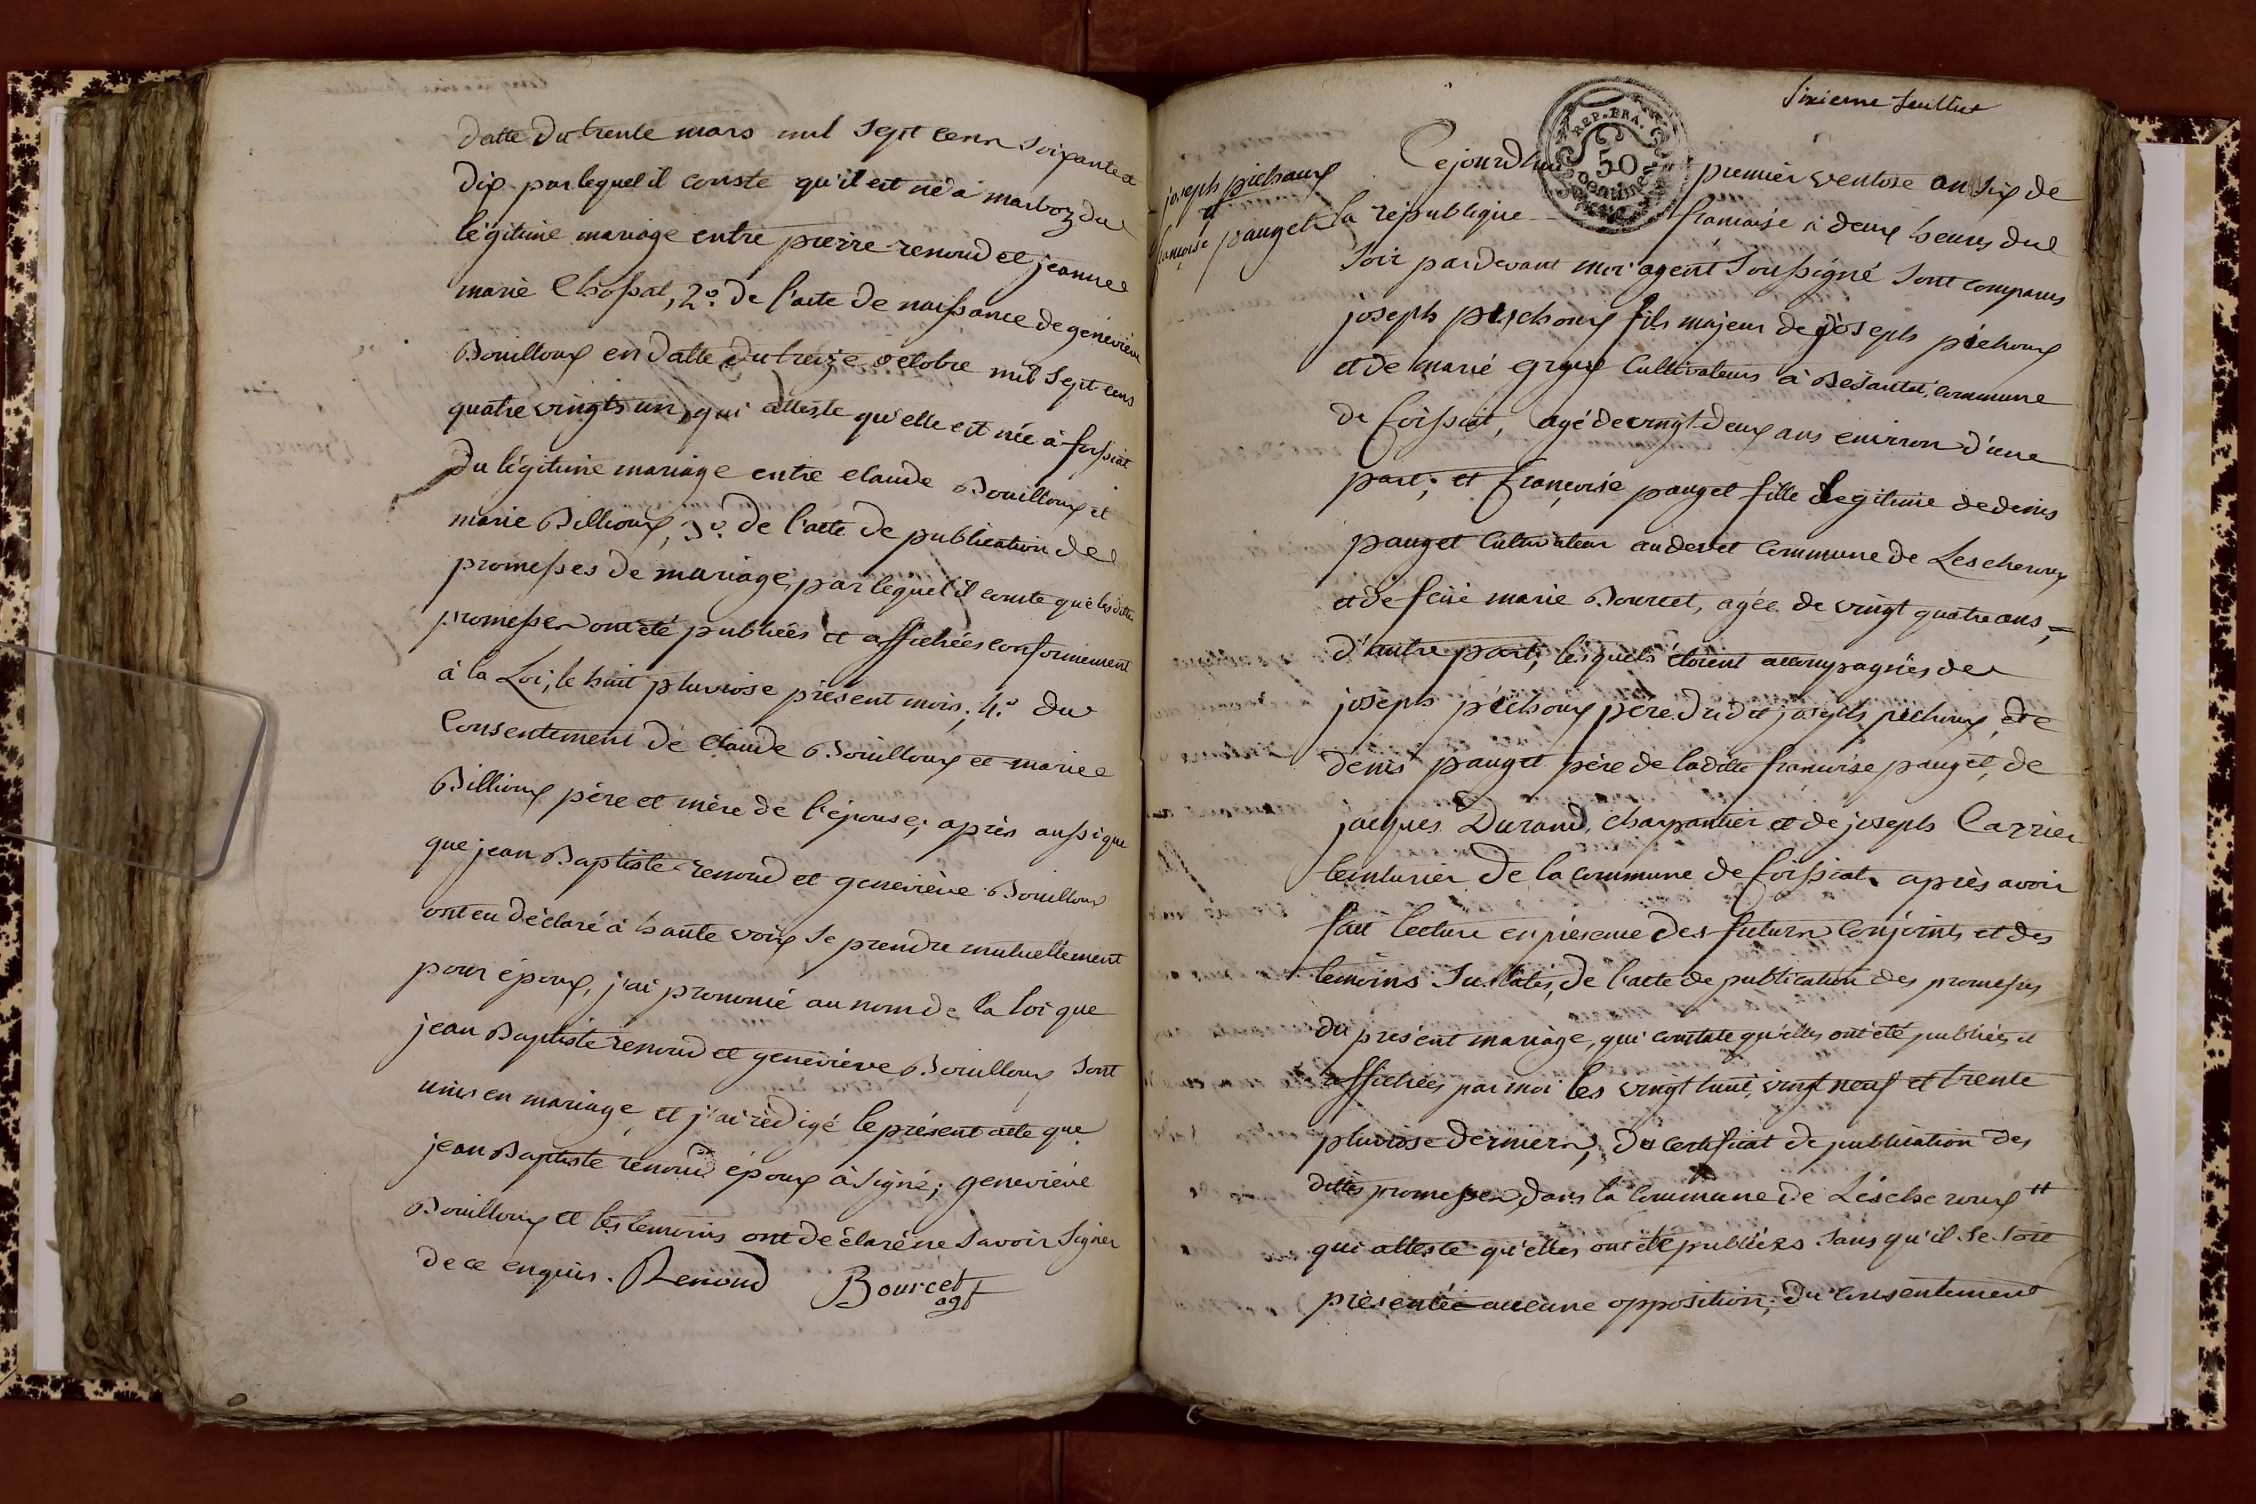 datte du trente mars mil sept cens soixante et
dix par lequel il conste qu'il est né à marboz du
légitime mariage entre pierre renoud et jeanne
marie Chossat, 2.° de l'acte de naissance de geneviève
Bouilloux en datte du treize octobre mil sept cens
quatre vingts un, qui atteste qu'elle est née à foissiat
du légitime mariage entre claude Bouilloux et
marie Billioux, 3.° de l'acte de publication de
promesses de mariage, par lequel il conste que les dittes
promesses ont été publiées et affichées conformement
à la Loi, le huit pluviose présent mois; 4.° du
consentement de claude Bouilloux et marie
Billioux père et mère de l'épouse; après aussi que
que jean Baptiste renoud et geneviève Bouilloux
ont eu déclaré à haute voix se prendre mutuellement
pour époux, j'ai prononcé au nom de la loi que
jean Baptiste renoud et geneviève Bouilloux sont
unis en mariage, et j'ai rédigé le présent acte que
jean Baptiste renoud époux à signé; geneviève
Bouilloux et les temoins ont déclaré ne savoir signer
de ce enquis. Renoud Bourcet
agt
Sixieme feuillet
REP. FRA.
50
centimes
joseph pichoux
et
françoise pauget
Cejourdhui premier ventose an six de
la république francaise à deux heures du
soir pardevant moi agent soussigné sont comparus
joseph pichoux fils majeur de joseph pichoux
et de marie groux cultivateurs à Besantet, commune
de foissiat, agé de vingt-deux ans environ d'une
part; et françoise pauget fille légitime de denis
pauget cultivateur au devet commune de Lescheroux
et de feüe marie Bourcet, agée de vingt quatre ans,
d'autre part; lesquels étoient accompagnés de
joseph pichoux père dudit joseph pichoux, de
denis pauget père de laditte francoise pauget, de
jacques Durand, charpantier et de joseph Carrier
teinturier de la commune de foissiat. après avoir
fait lecture en présence des futurs conjoints et des
temoins susdates, de l'acte de publication des promesses
du présent mariage, qui constate qu'elles ont été publiées et
affichées par moi les vingt huit, vingt neuf et trente
pluviose derniers, du certificat de publication des
dittes promesses dans la commune de Lescheroux
qui atteste qu'elles ont été publiées sans qu'il se soit
présentée aucune opposition; du consentement